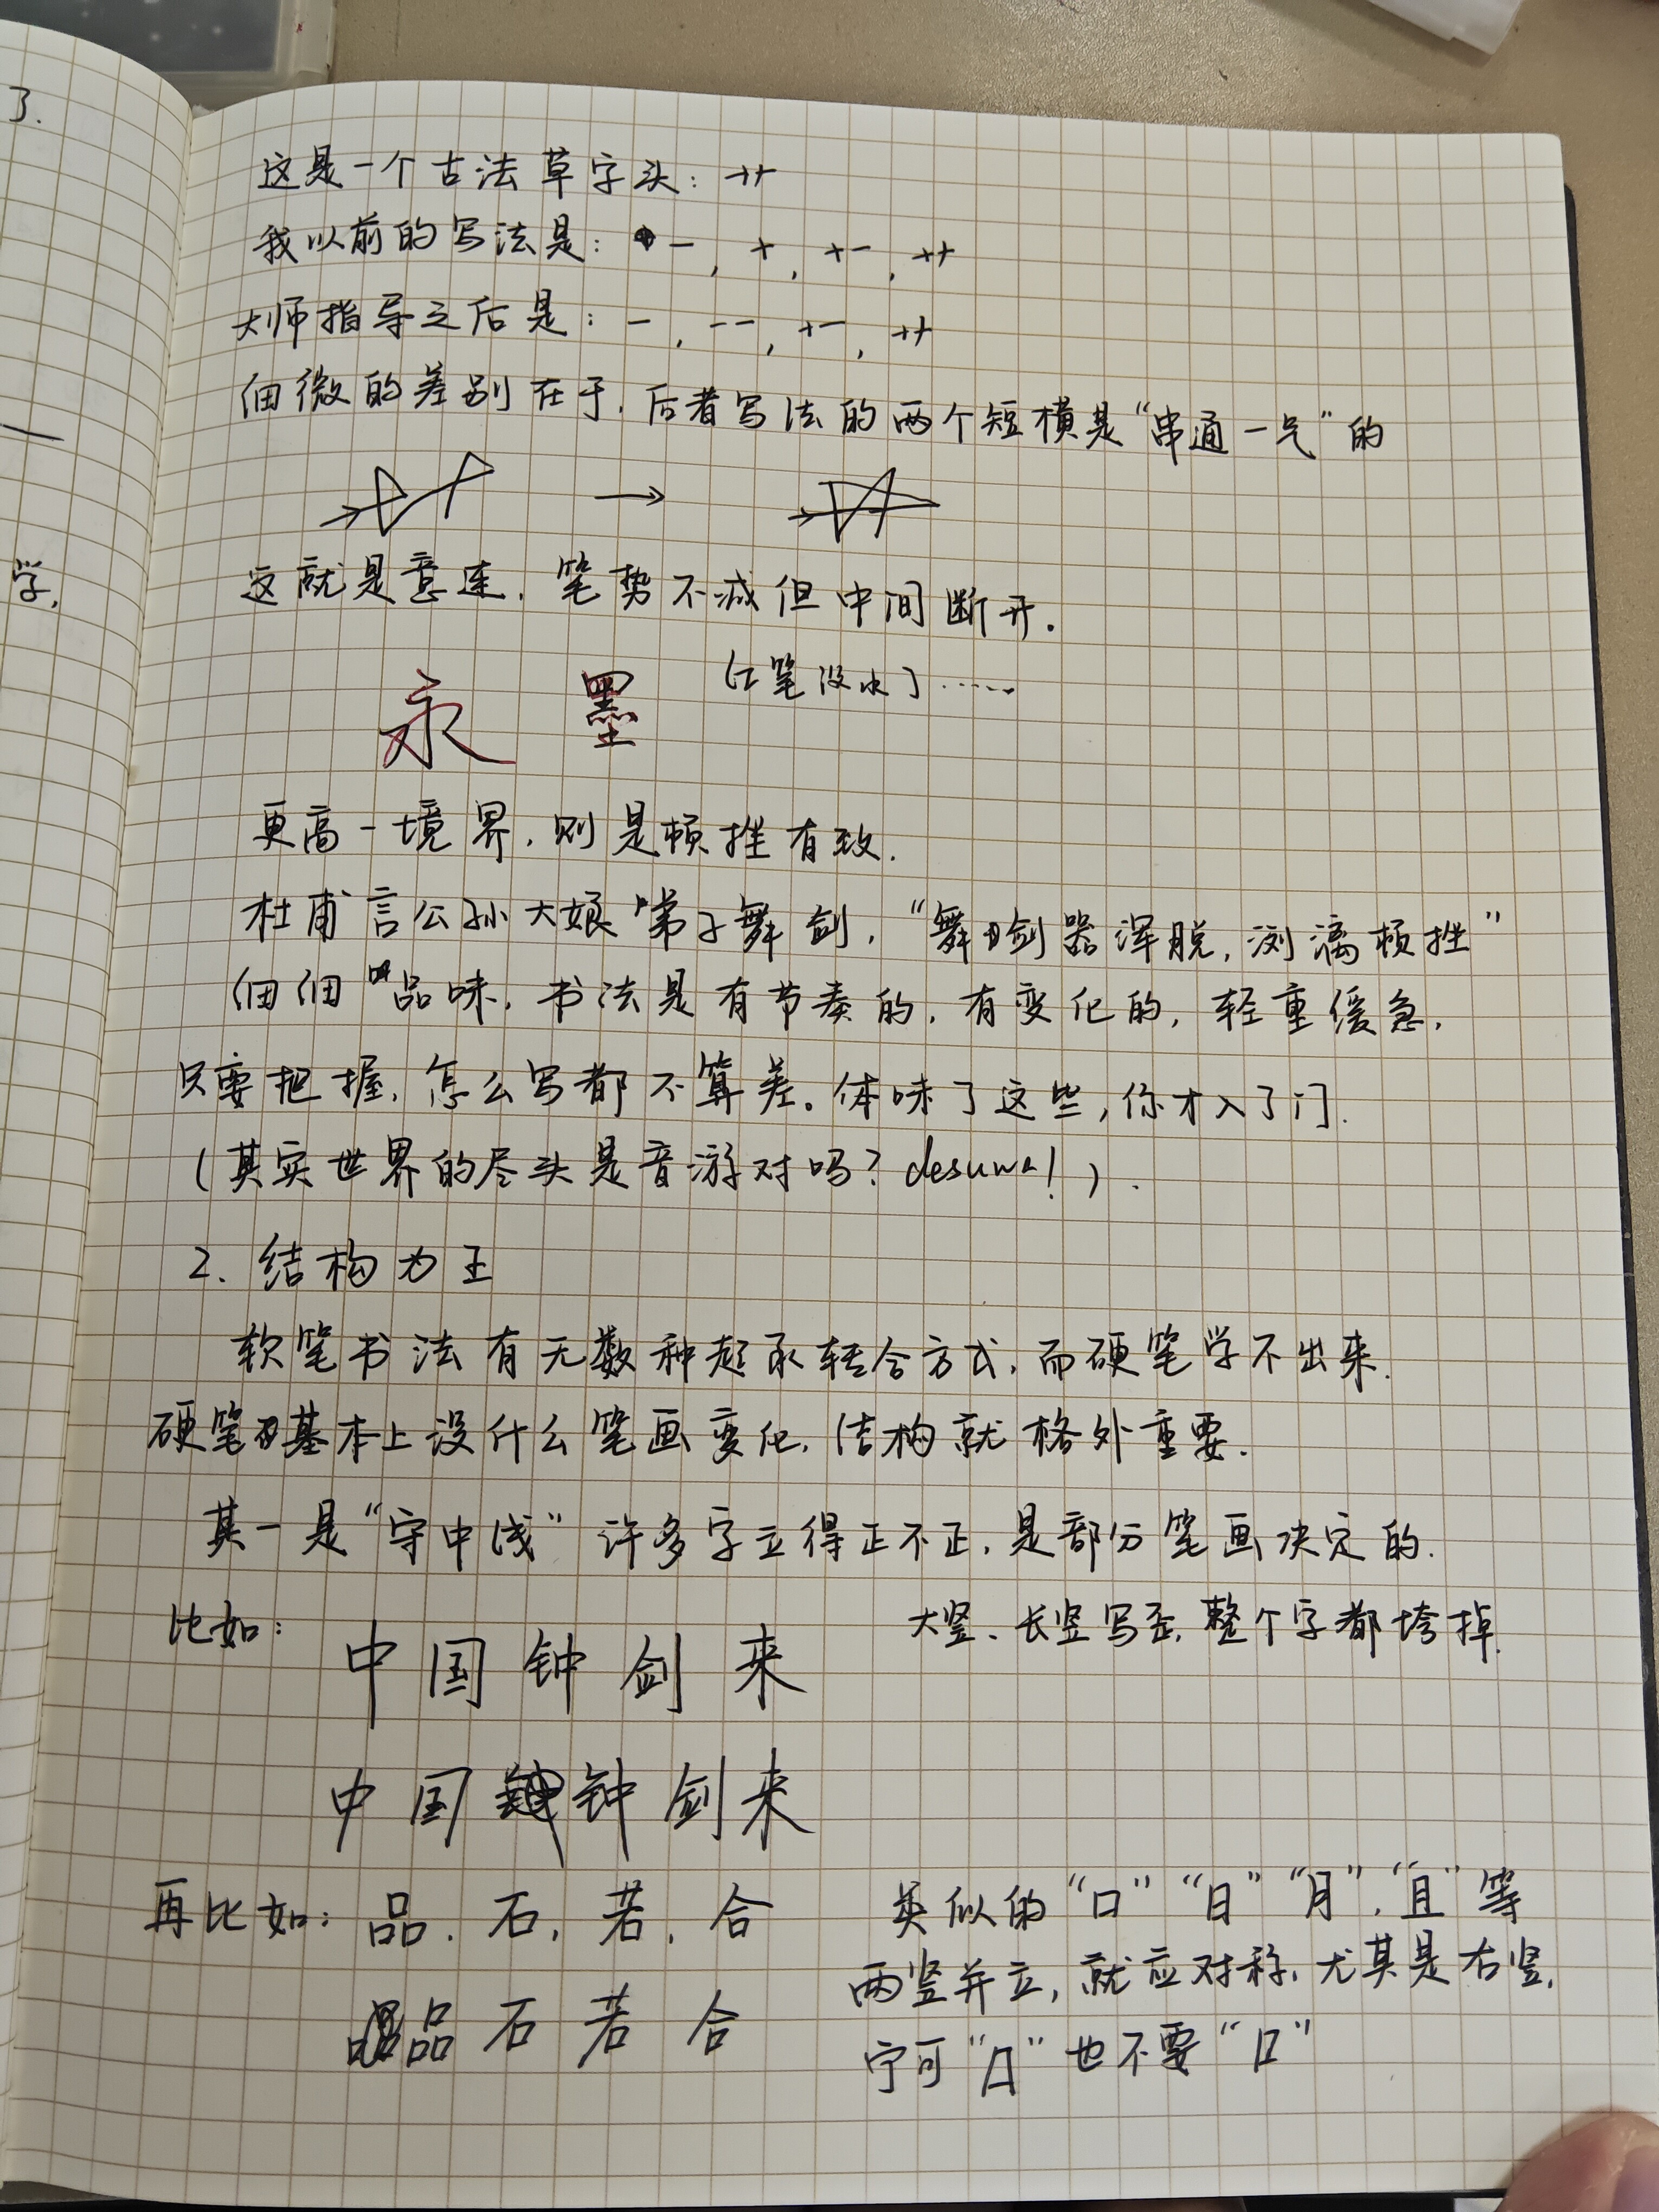 了.
学,
这是一个古法草字头：
我以前的写法是：一，十，十一，
大师指导之后是：一，一一，十一，
细微的差别在于，后者写法的两个短横是“串通一气”的
→
这就是意连，笔势不减但中间断开。
永 墨 红笔没水了……
更高一境界，则是顿挫有致.
杜甫言公孙大娘弟子舞剑，“舞剑器浑脱，浏漓顿挫”
细细品味，书法是有节奏的，有变化的，轻重缓急，
只要把握，怎么写都不算差。体味了这些，你才入了门.
（其实世界的尽头是音游对吗？desuwa！）.
2. 结构为王
软笔书法有无数种起承转合方式，而硬笔学不出来.
硬笔基本上没什么笔画变化，结构就格外重要.
其一是“守中线” 许多字立得正不正，是部分笔画决定的.
比如：中国钟剑来
大竖、长竖写歪，整个字都垮掉.
中国钟剑来
再比如：品、石，若，合
品石若合
类似的“口”“日”“月”，“且”等
两竖并立，就应对称，尤其是右竖，
宁可“口”也不要“口”